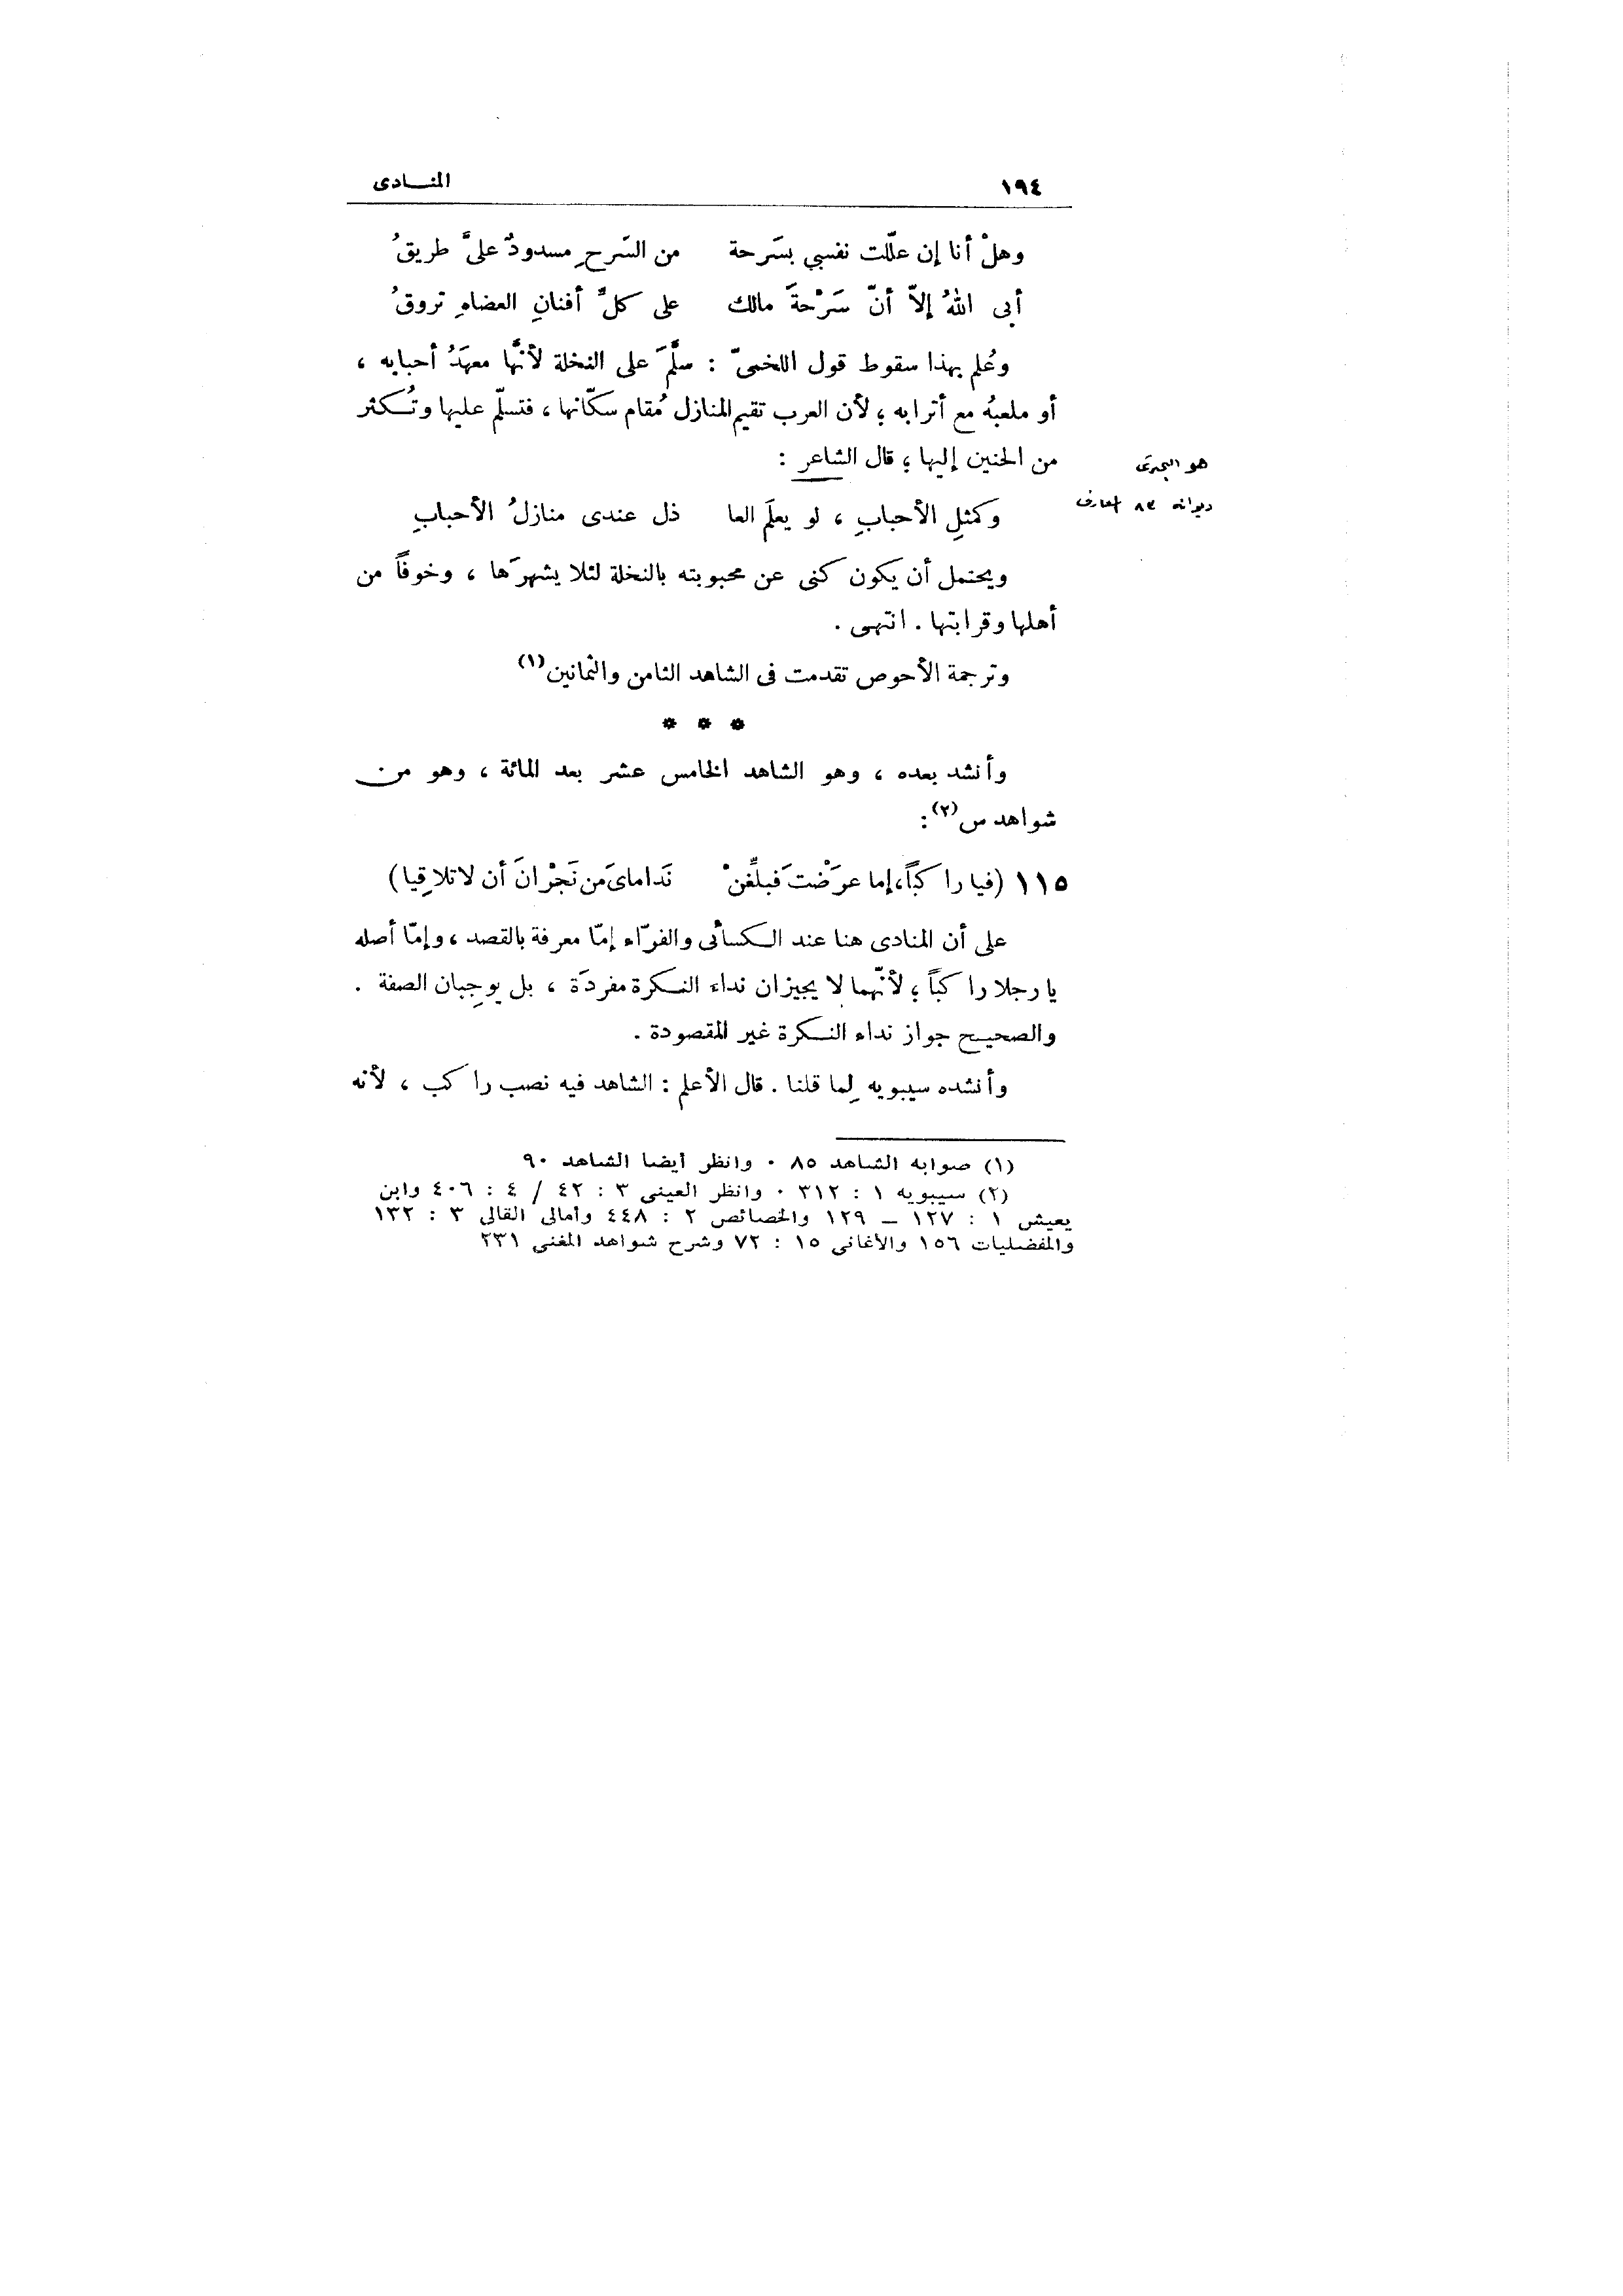 ١٩٤ المنـــادى
وهلْ أنا إن علّلت نفسي بسَرحة من السَّرحِ مسدودٌ علىَّ طريقُ
أبى اللهُ إلاّ أنّ سَرْحةَ مالك على كلِّ أفنانِ العضاهِ تروقُ
وعُلم بهذا سقوط قول اللخمىّ : سلَّمَ على النخلة لأنَّها معهَدُ أحبابه ،
أو ملعبُه مع أترابه ؛ لأن العرب تقيم المنازل مُقام سكّانها ، فتسلّم عليها وتُكثر
من الحنين إليها ؛ قال الشاعر :
هو البحترى
وكمثلِ الأحبابِ ، لو يعلَم العا ذل عندى منازلُ الأحبابِ
ديوانه ٨٣ المعارف
ويحتمل أن يكون كنى عن محبوبته بالنخلة لئلا يشهرَها ، وخوفاً من
أهلها وقرابتها . انتهى .
وترجمة الأحوص تقدمت فى الشاهد الثامن والثمانين (١)
* * *
وأنشد بعده ، وهو الشاهد الخامس عشر بعد المائة ، وهو من
شواهد س (٢) :
١١٥ (فيا راكباً، إما عرَضْتَ فبلِّغنْ نَداماىَ من نَجْرانَ أن لا تلاقِيا)
على أن المنادى هنا عند الكسأئى والفرّاء إمّا معرفة بالقصد ، وإمّا أصله
يا رجلا راكباً ؛ لأنّهما لا يجيزان نداء النكرة مفردَة ، بل يوجِبان الصفة .
والصحيح جواز نداء النكرة غير المقصودة .
وأنشده سيبويه لِما قلنا . قال الأعلم : الشاهد فيه نصب راكب ، لأنه
(١) صوابه الشاهد ٨٥ . وانظر أيضا الشاهد ٩٠
(٢) سيبويه ١ : ٣١٢ . وانظر العينى ٣ : ٤٢ / ٤ : ٤٠٦ وابن
يعيش ١ : ١٢٧ – ١٢٩ والخصائص ٢ : ٤٤٨ وأمالى القالى ٣ : ١٣٢
والمفضليات ١٥٦ والأغانى ١٥ : ٧٢ وشرح شواهد المغنى ٢٣١